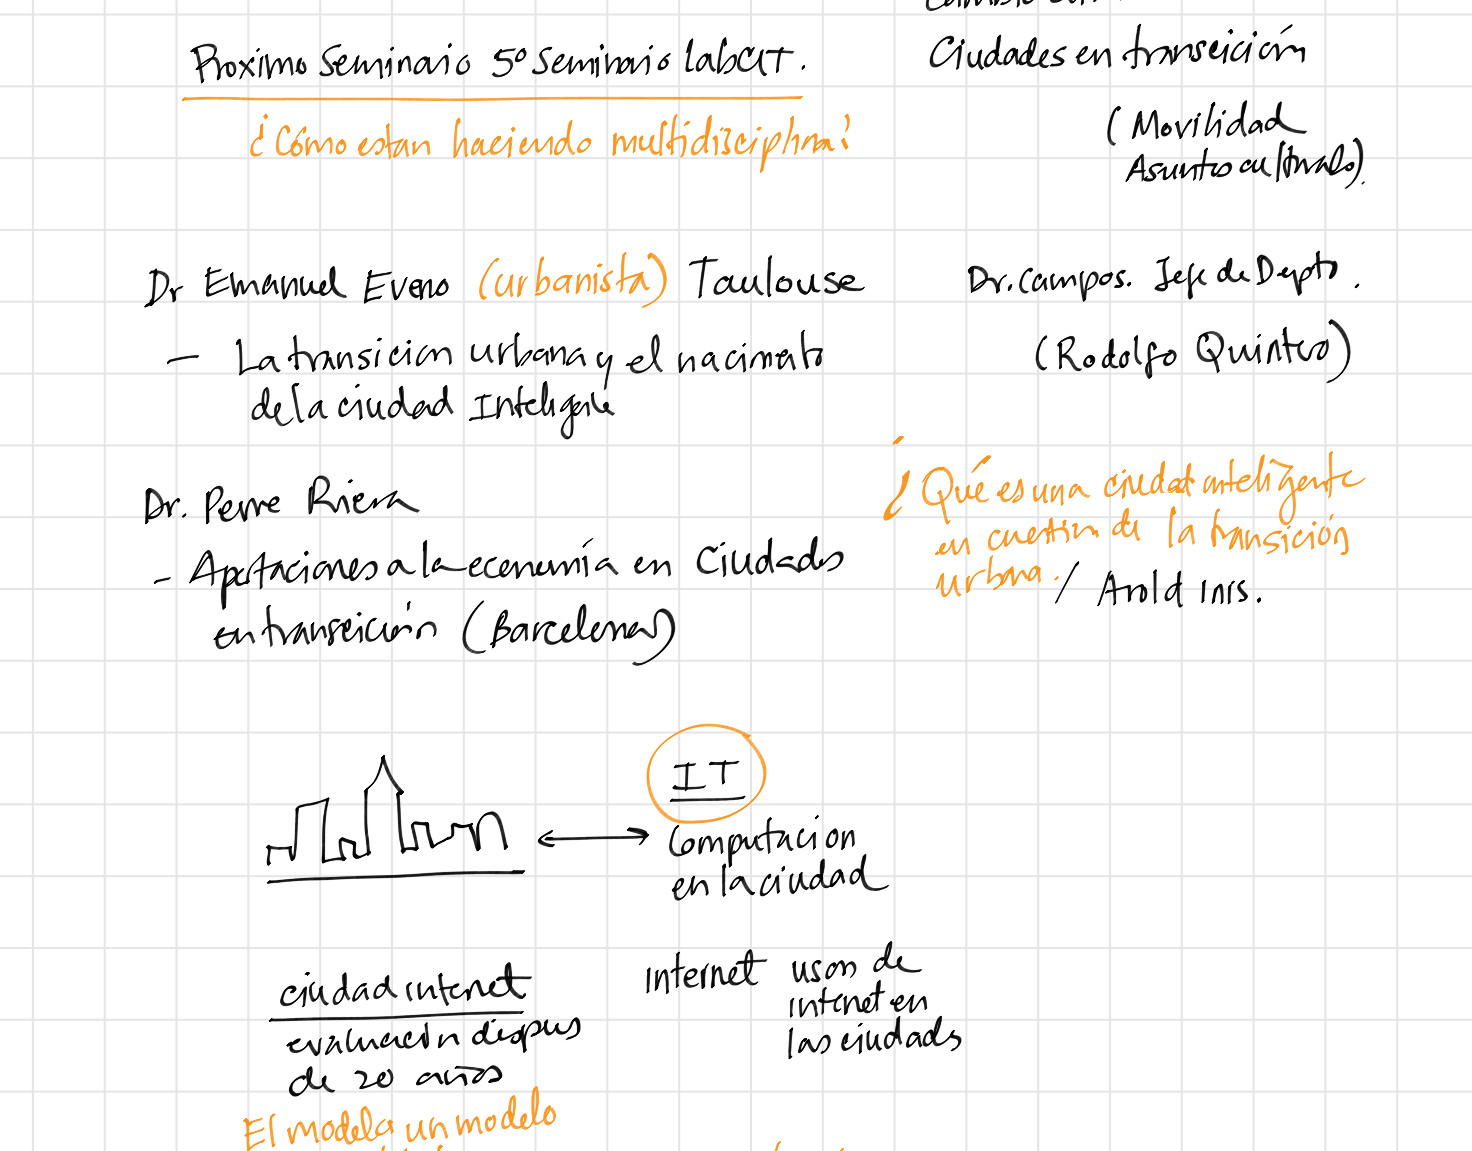 Proximo Seminario 5º Seminario labCIT.
¿Cómo estan haciendo multidisciplina?
Ciudades en transeición
(Movilidad
Asunto culturales).
Dr Emanuel Eveno (urbanista) Taulouse
- La transicion urbana y el nacimiento
de la ciudad Inteligente
Dr. Campos. Jefe de Depto.
(Rodolfo Quintero)
Dr. Perre Riera
- Aportaciones a la economía en Ciudades
en transeición (Barcelona)
¿Qué es una ciudad inteligente
en cuestion de la transición
urbana. / Arold Inis.
IT
Computacion
en la ciudad
ciudad internet
evaluación dispus
de 20 años
Internet uson de
internet en
las ciudads
El modelo un modelo